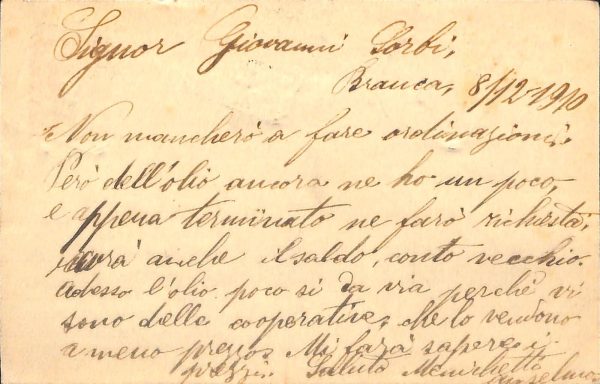 Signor Giovanni Sorbi,
Branca, 8/12-1910
Non mancherò a fare ordinazioni.
Però dell'olio ancora ne ho un poco,
e appena terminato ne farò richiesta,
anche il saldo, conto vecchio.
Adesso l'olio poco si da via perchè vi
sono delle cooperative, che lo vendono
a meno prezzo. Mi farà sapere i
prezzi. Saluto Menichetti